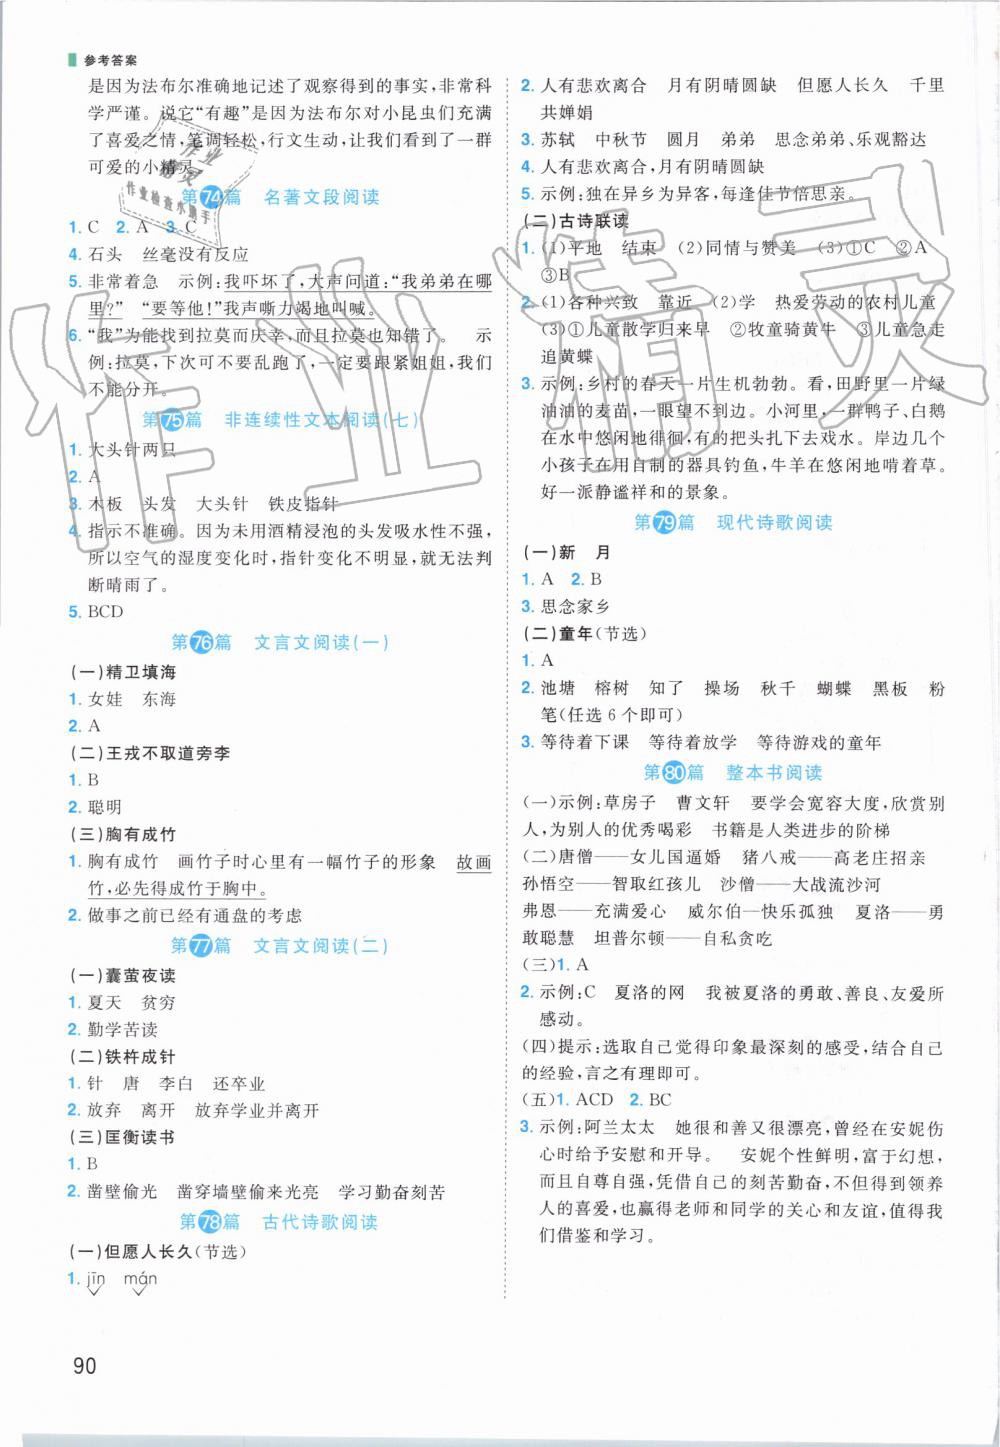 参考答案
是因为法布尔准确地记述了观察得到的事实,非常科
学严谨。说它“有趣”是因为法布尔对小昆虫们充满
了喜爱之情,笔调轻松,行文生动,让我们看到了一群
可爱的小精灵。
第74篇 名著文段阅读
1. C 2. A 3. C
4. 石头 丝毫没有反应
5. 非常着急 示例:我吓坏了,大声问道:“我弟弟在哪
里?” “要等他!”我声嘶力竭地叫喊。
6. “我”为能找到拉莫而庆幸,而且拉莫也知错了。 示
例:拉莫,下次可不要乱跑了,一定要跟紧姐姐,我们
不能分开。
第75篇 非连续性文本阅读(七)
1. 大头针两只
2. A
3. 木板 头发 大头针 铁皮指针
4. 指示不准确。因为未用酒精浸泡的头发吸水性不强,
所以空气的湿度变化时,指针变化不明显,就无法判
断晴雨了。
5. BCD
第76篇 文言文阅读(一)
(一)精卫填海
1. 女娃 东海
2. A
(二)王戎不取道旁李
1. B
2. 聪明
(三)胸有成竹
1. 胸有成竹 画竹子时心里有一幅竹子的形象 故画
竹,必先得成竹于胸中。
2. 做事之前已经有通盘的考虑
第77篇 文言文阅读(二)
(一)囊萤夜读
1. 夏天 贫穷
2. 勤学苦读
(二)铁杵成针
1. 针 唐 李白 还卒业
2. 放弃 离开 放弃学业并离开
(三)匡衡读书
1. B
2. 凿壁偷光 凿穿墙壁偷来光亮 学习勤奋刻苦
第78篇 古代诗歌阅读
(一)但愿人长久(节选)
1. jīn mán
90
2. 人有悲欢离合 月有阴晴圆缺 但愿人长久 千里
共婵娟
3. 苏轼 中秋节 圆月 弟弟 思念弟弟、乐观豁达
4. 人有悲欢离合,月有阴晴圆缺
5. 示例:独在异乡为异客,每逢佳节倍思亲。
(二)古诗联读
1. (1)平地 结束 (2)同情与赞美 (3)①C ②A
③B
2. (1)各种兴致 靠近 (2)学 热爱劳动的农村儿童
(3)①儿童散学归来早 ②牧童骑黄牛 ③儿童急走
追黄蝶
3. 示例:乡村的春天一片生机勃勃。看,田野里一片绿
油油的麦苗,一眼望不到边。小河里,一群鸭子、白鹅
在水中悠闲地徘徊,有的把头扎下去戏水。岸边几个
小孩子在用自制的器具钓鱼,牛羊在悠闲地啃着草。
好一派静谧祥和的景象。
第79篇 现代诗歌阅读
(一)新 月
1. A 2. B
3. 思念家乡
(二)童年(节选)
1. A
2. 池塘 榕树 知了 操场 秋千 蝴蝶 黑板 粉
笔(任选6个即可)
3. 等待着下课 等待着放学 等待游戏的童年
第80篇 整本书阅读
(一)示例:草房子 曹文轩 要学会宽容大度,欣赏别
人,为别人的优秀喝彩 书籍是人类进步的阶梯
(二)唐僧——女儿国逼婚 猪八戒——高老庄招亲
孙悟空——智取红孩儿 沙僧——大战流沙河
弗恩——充满爱心 威尔伯——快乐孤独 夏洛——勇
敢聪慧 坦普尔顿——自私贪吃
(三)1. A
2. 示例:C 夏洛的网 我被夏洛的勇敢、善良、友爱所
感动。
(四)提示:选取自己觉得印象最深刻的感受,结合自己
的经验,言之有理即可。
(五)1. ACD 2. BC
3. 示例:阿兰太太 她很和善又很漂亮,曾经在安妮伤
心时给予安慰和开导。 安妮个性鲜明,富于幻想,
而且自尊自强,凭借自己的刻苦勤奋,不但得到领养
人的喜爱,也赢得老师和同学的关心和友谊,值得我
们借鉴和学习。
作业精灵
作业
精灵
作业检查小助手